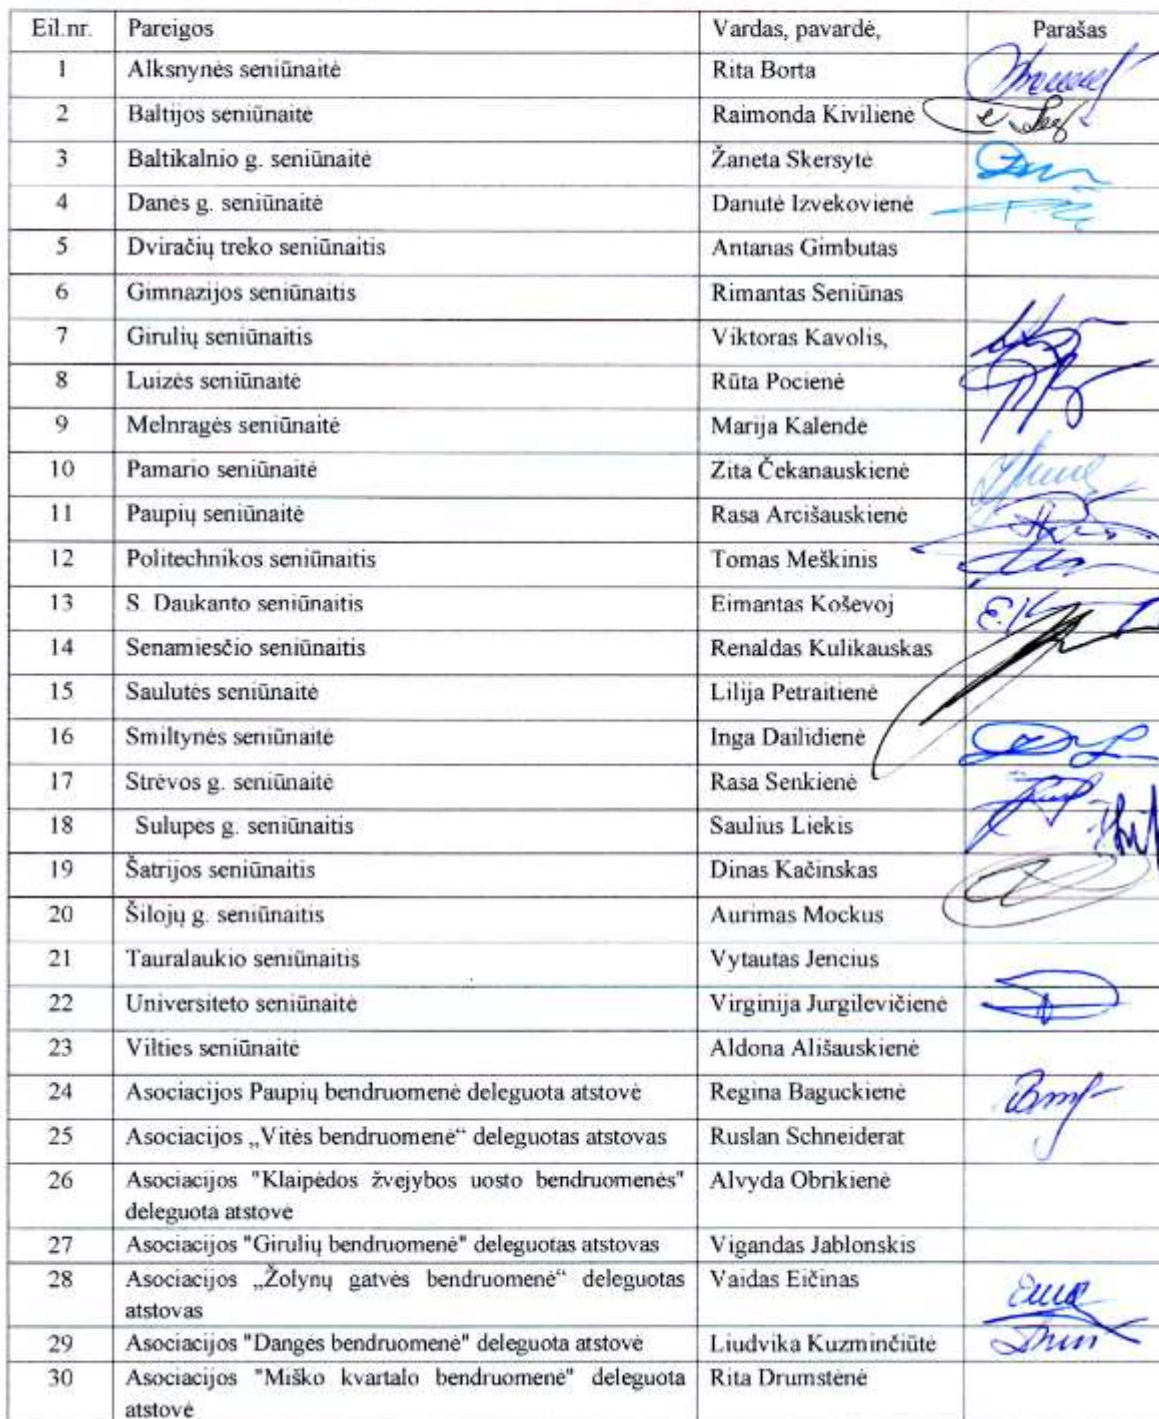 Eil.nr. Pareigos Vardas, pavardė, Parašas
1 Alksnynės seniūnaitė Rita Borta
2 Baltijos seniūnaitė Raimonda Kivilienė
3 Baltikalnio g. seniūnaitė Žaneta Skersytė
4 Danės g. seniūnaitė Danutė Izvekovienė
5 Dviračių treko seniūnaitis Antanas Gimbutas
6 Gimnazijos seniūnaitis Rimantas Seniūnas
7 Girulių seniūnaitis Viktoras Kavolis,
8 Luizės seniūnaitė Rūta Pocienė
9 Melnragės seniūnaitė Marija Kalendė
10 Pamario seniūnaitė Zita Čekanauskienė
11 Paupių seniūnaitė Rasa Arcišauskienė
12 Politechnikos seniūnaitis Tomas Meškinis
13 S. Daukanto seniūnaitis Eimantas Koševoj
14 Senamiesčio seniūnaitis Renaldas Kulikauskas
15 Saulutės seniūnaitė Lilija Petraitienė
16 Smiltynės seniūnaitė Inga Dailidienė
17 Strėvos g. seniūnaitė Rasa Senkienė
18 Sulupės g. seniūnaitis Saulius Liekis
19 Šatrijos seniūnaitis Dinas Kačinskas
20 Šilojų g. seniūnaitis Aurimas Mockus
21 Tauralaukio seniūnaitis Vytautas Jencius
22 Universiteto seniūnaitė Virginija Jurgilevičienė
23 Vilties seniūnaitė Aldona Ališauskienė
24 Asociacijos Paupių bendruomenė deleguota atstovė Regina Baguckienė
25 Asociacijos „Vitės bendruomenė“ deleguotas atstovas Ruslan Schneiderat
26 Asociacijos "Klaipėdos žvejybos uosto bendruomenės" Alvyda Obrikienė
deleguota atstovė
27 Asociacijos "Girulių bendruomenė" deleguotas atstovas Vigandas Jablonskis
28 Asociacijos „Žolynų gatvės bendruomenė“ deleguotas Vaidas Eičinas
atstovas
29 Asociacijos "Dangės bendruomenė" deleguota atstovė Liudvika Kuzminčiūtė
30 Asociacijos "Miško kvartalo bendruomenė" deleguota Rita Drumstėnė
atstovė